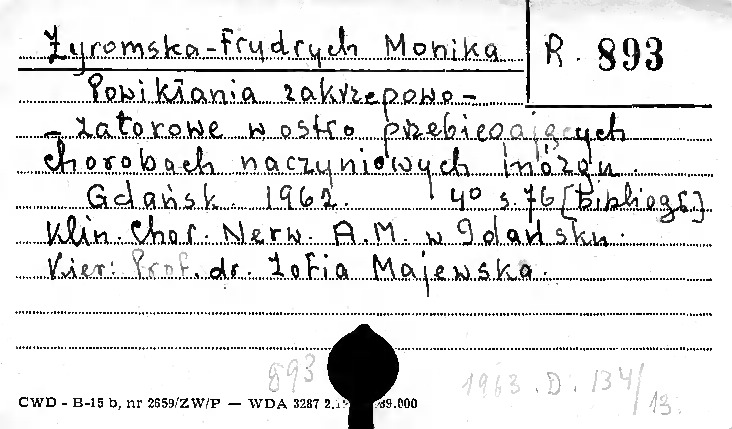 Żyromska-Frydrych Monika
R. 893
Powikłania zakrzepowo-
-zatorowe w ostro przebiegających
chorobach naczyniowych mózgu.
Gdańsk. 1962. 4° s. 76 [Bibliogr.]
Klin. Chor. Nerw. A.M. w Gdańsku.
Kier: Prof. dr. Zofia Majewska.
893
1963. D. 134/13.
CWD - B-15 b, nr 2659/ZW/P — WDA 3287 2. 89.000